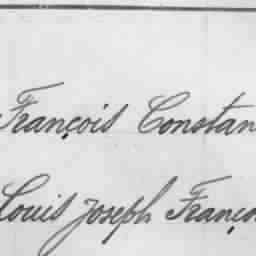 François Constan
Louis Joseph Franço